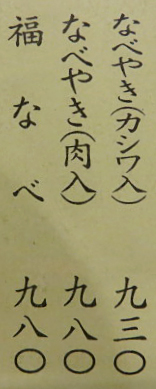 なべやき(カシワ入) 九三〇
なべやき(肉入) 九八〇
福なべ 九八〇